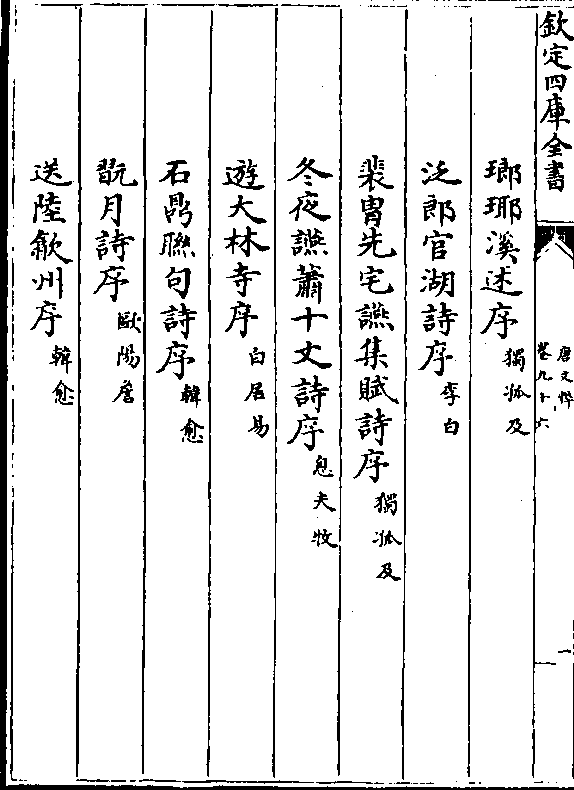 欽定四庫全書
唐文粹
卷九十六
一
瑯琊溪述序 獨孤及
泛郎官湖詩序 李白
裴胄先宅讌集賦詩序 獨孤及
冬夜讌蕭十丈詩序 息夫牧
遊大林寺序 白居易
石鼎聯句詩序 韓愈
翫月詩序 歐陽詹
送陸歙州序 韓愈